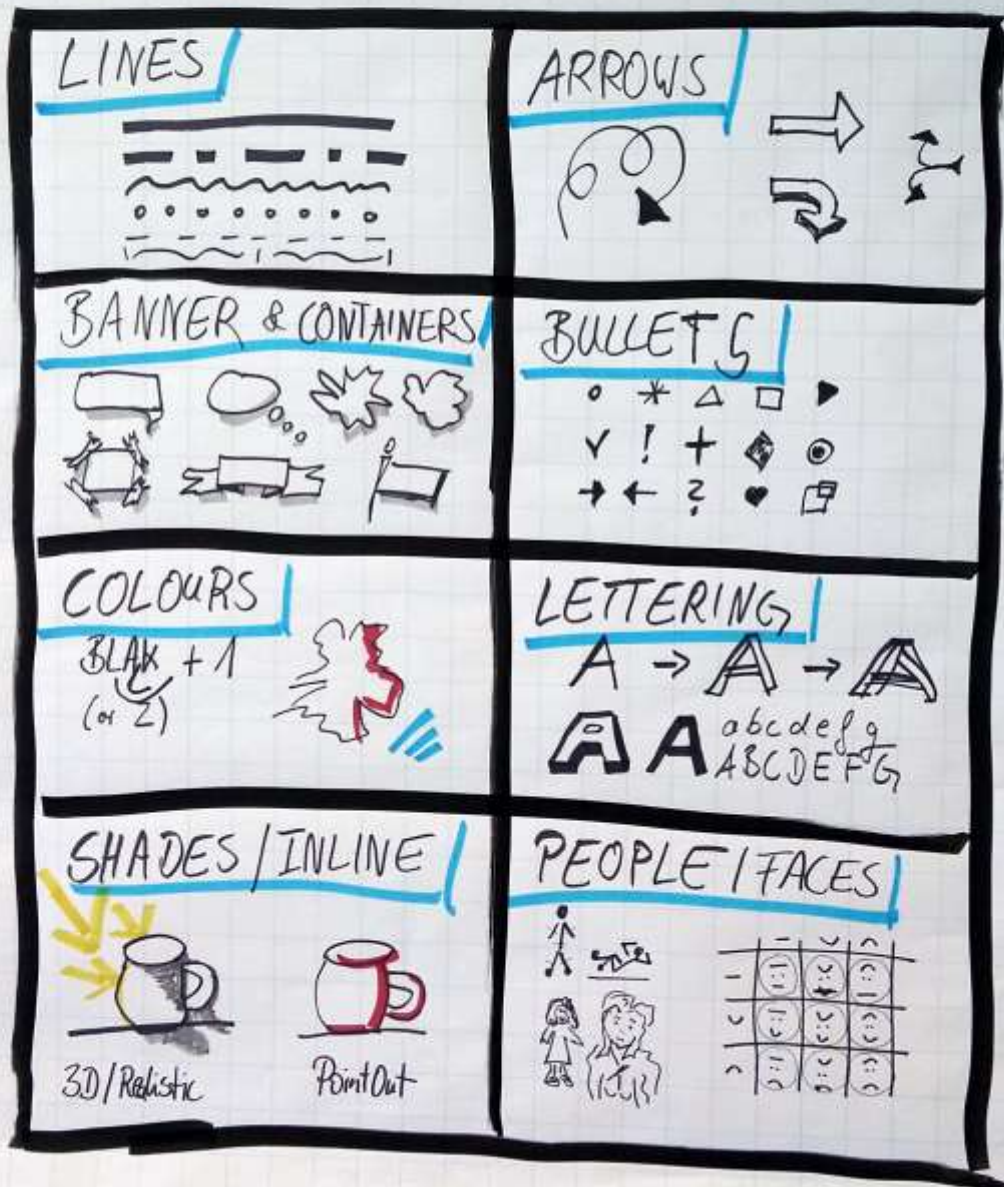 LINES
ARROWS
BANNER & CONTAINERS
BULLETS
! +
?
COLOURS
BLAK + 1
(or 2)
LETTERING
A → A → A
A A abcdefg
ABCDEFG
SHADES/INLINE
3D/Realistic
Point Out
PEOPLE/FACES